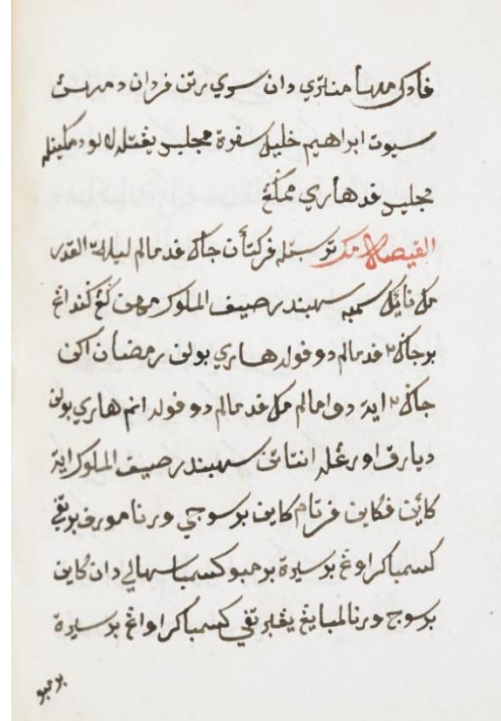 فادک مها منتري دان سوي رتن فردان
سيوت ابراهيم خليل سفرة مجليس يغتله لالو دمکينله
مجليس فد هاري ممڬغ
القيصه مک ترسبتله فرکتأن جاڬ فد مالم ليلة القدر
مک نايکله سمبه سهبندر صيف الملوک کنداغ
برجاڬ٢ فد مالم دو فوله هاري بولن رمضان اکن
جاڬ٢ ايت دوا مالم مک فد مالم دو فوله انم هاري بولن
دبارق اورغله انتاتن سهبندر صيف الملوک ايت
کائن فکاين فرنام کاين برسوجي ورنا موره بربقي
کسمبا کراوغ برسيرة برجمبو کسمبا سهالي دان کاين
برسوج ورنا لمبايغ يغبربقي کسمبا کراواغ برسيرة
برجمبو